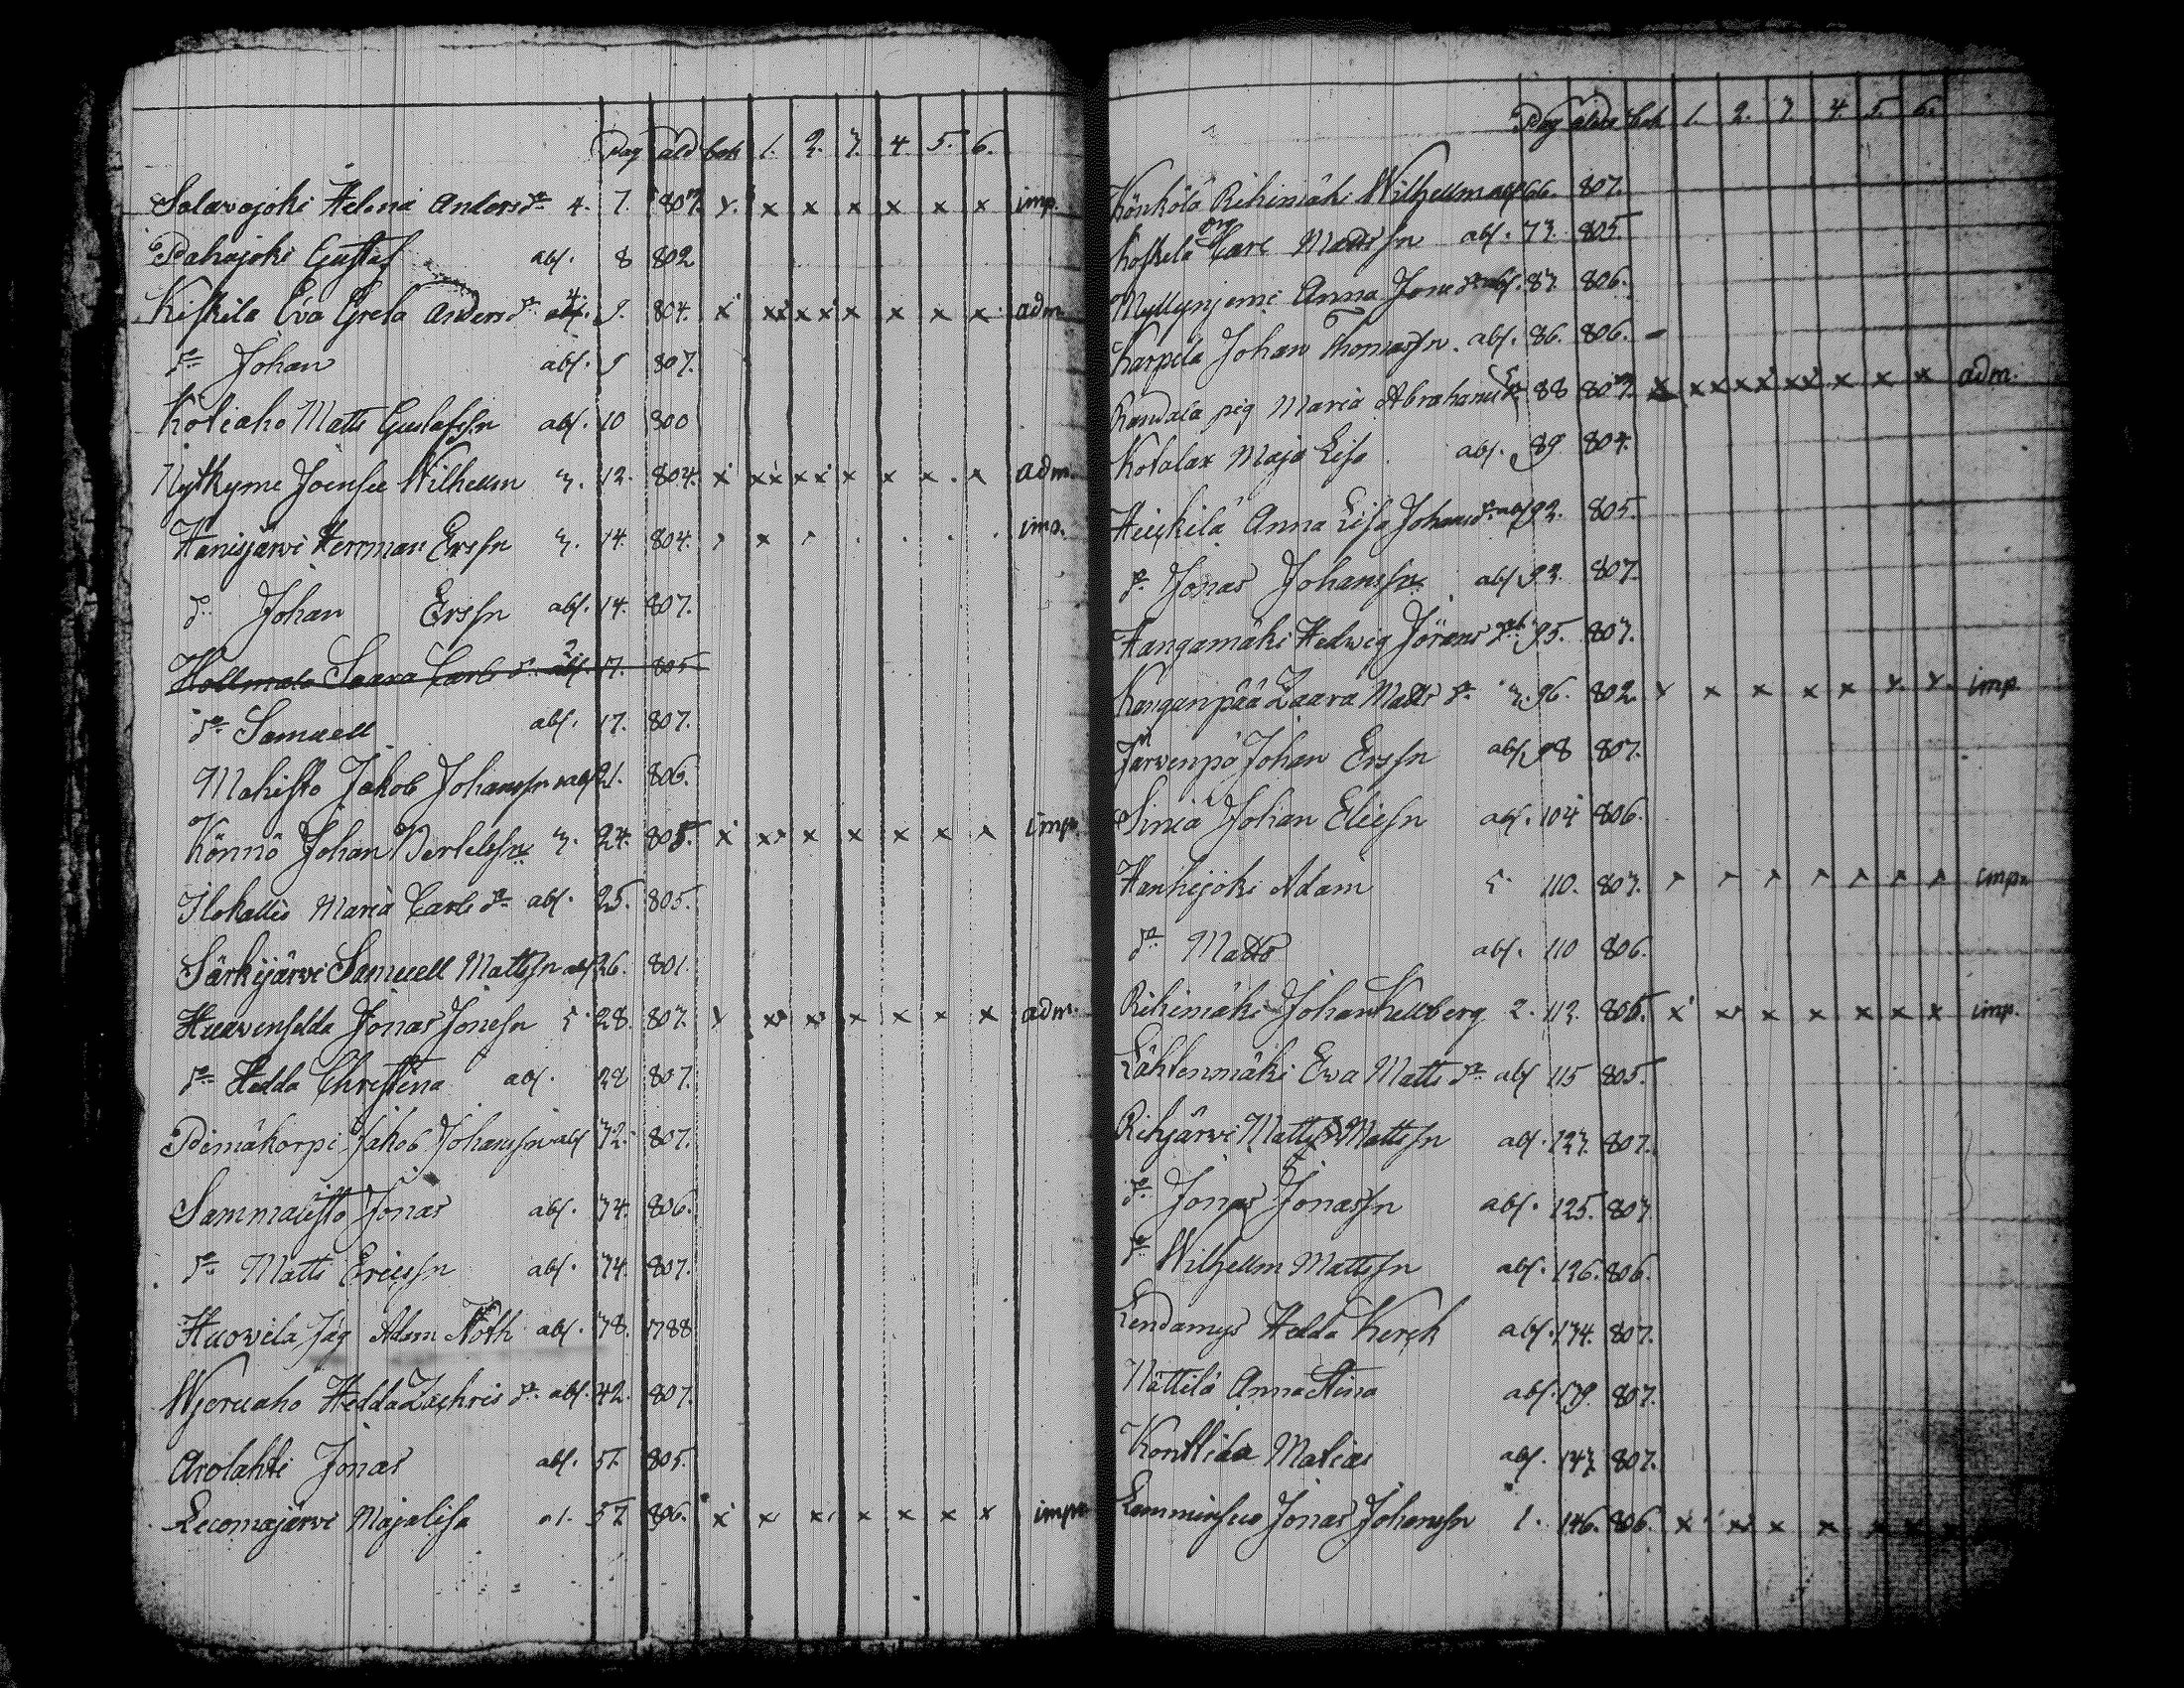 Pag ald bok 1. 2. 3. 4. 5. 6.
Salavojoki Helena Anders dr 4. 7. 807. x. x x x x x x imp.
Pahajoki Gustaf abs. 8 802
Kiskila Eva Greta Anders dr 4. 9. 804. x xx xx x x x x adm.
do Johan abs. 9 807.
Koliaho Matts Gustafssn abs. 10 800
Nytkyme Joensuu Wilhelm 3. 12. 804. x xx xx x x x x adm.
Hanisjärvi Herrman Erssn 3. 14. 804. imp.
do Johan Erssn abs. 14. 807.
Hollmalo Saara Carls dr 2 abs. 17. 805
do Samuell abs. 17. 807.
Mahisto Jakob Johanssn abs 21. 806.
Könnö Johan Bertelssn 3. 24. 805. x xx x x x x x imp.
Ilokallio Maria Carls dr abs. 25. 805.
Särkijärvi Samuell Mattssn abs 26. 801.
Huavenselda Jonas Jonessn 5 28. 807. x xx xx x x x x adm.
do Hedda Christina abs. 28 807.
Pimäkorpi Jakob Johanssn abs 32. 807.
Sammalisto Jonas abs. 34. 806.
do Matts Ericssn abs. 34. 807.
Huovila Jäg Adam Noth abs. 38. 1788
Wjoruaho Hedda Zachris dr abs. 42. 807.
Arolahti Jonas abs. 57. 805.
Leiomajärvi Majalisa 1. 57. 806. x x x x x x x imp.
Pag alder bok 1. 2. 3. 4. 5. 6.
Könkölä Rihimäki Wilhellm abs 66. 807.
Koskela Carl Mattssn abs. 73. 805.
Myllynjemi Anna Jons dr abs. 83. 806.
Karpela Johan Thomassn. abs. 86. 806.
Randala pig Maria Abrahams dr 5 88 807. x xx xx xx x x x adm.
Kotalax Maja Lisa abs. 89 804.
Heickilä Anna Lisa Johans dr abs 92. 805.
do Jonas Johanssn abs 93. 807.
Hangamäki Hedwig Jörans dr abs 95. 807.
Kanganpää Zaara Matts dr 3. 96. 802. x x x x x x. x. imp.
Järvenpä Johan Erssn abs. 98 807.
Sinia Johan Eliessn abs. 104 806.
Hanhijoki Adam 5. 110. 807. imp.
do Matts abs. 110 806.
Rihimäki Johan Kullberg 2. 113. 805. x xx x x x x x imp.
Lähtenmäki Ewa Matts dr abs 115 805.
Rihjärvi Matts Mattssn abs. 123. 807.
do Jonas Jonassn abs. 125. 807
do Wilhellm Mattssn abs. 126. 806.
Lendamys Hedda Kerck abs. 134. 807.
Nättilä Anna Stina abs. 139. 807.
Konttila Matias abs. 143. 807.
Lamminsuo Jonas Johanssn 1. 146. 806. x xx x x x x x